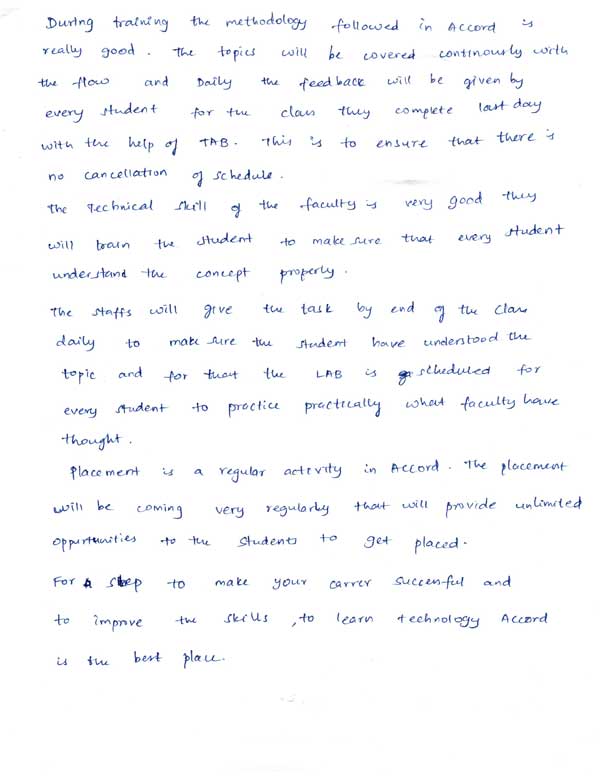 During training the methodology followed in Accord is
really good. The topics will be covered continously with
the flow and Daily the feedback will be given by
every student for the class they complete last day
with the help of TAB. This is to ensure that there is
no cancellation of schedule.
The Technical skill of the faculty is very good they
will train the student to make sure that every student
understand the concept properly.
The staffs will give the task by end of the class
daily to make sure the student have understood the
topic and for that the LAB is scheduled for
every student to practice practically what faculty have
thought.
Placement is a regular activity in Accord. The placement
will be coming very regularly that will provide unlimited
oppurtunities to the students to get placed.
For A step to make your carrer successful and
to improve the skills, to learn technology Accord
is the best place.